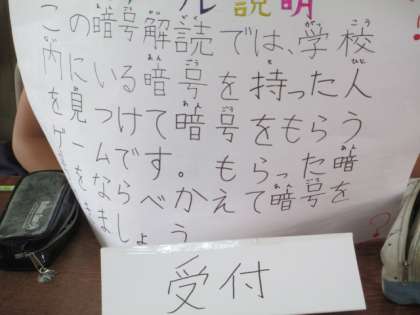 ル説明
この暗号解読では、学校
内にいる暗号を持った人
を見つけて暗号をもらう
ゲームです。もらった暗
をならべかえて暗号を
ましょう
受付